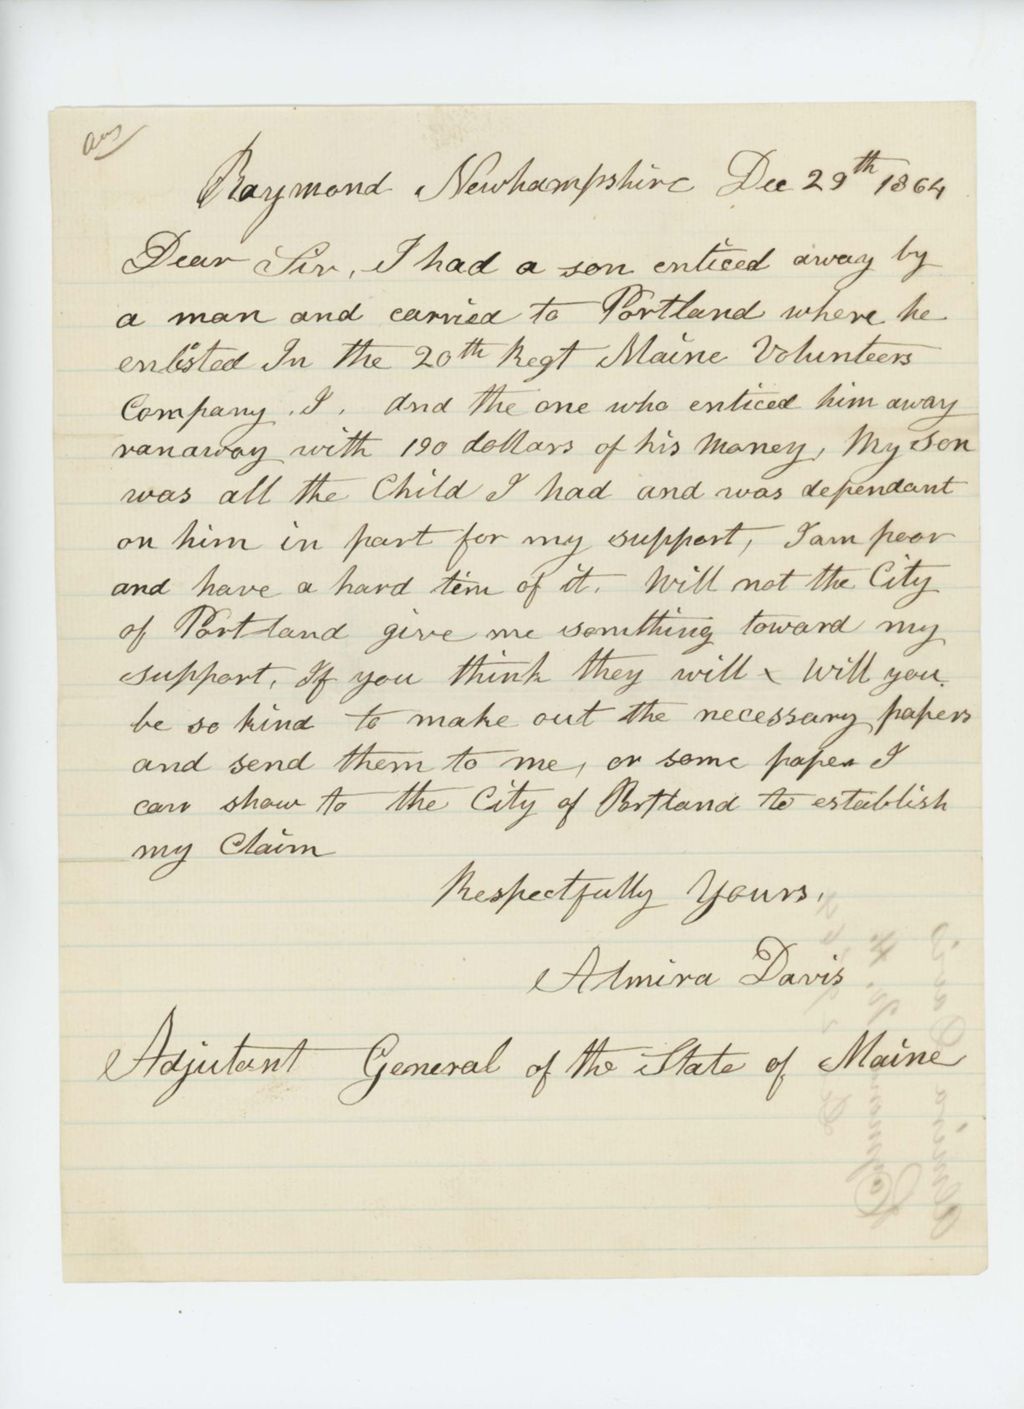 Ans
Raymond Newhampshire Dec 29th 1864
Dear Sir, I had a son enticed away by
a man and carried to Portland where he
enlisted In the 20th Regt Maine Volunteers
Company . I . And the one who enticed him away
ranaway with 190 dollars of his money, My son
was all the Child I had and was dependant
on him in part for my support, I am poor
and have a hard tim of it. Will not the City
of Portland give me something toward my
support, If you think they will Will you
be so kind to make out the necessary papers
and send them to me, or some paper I
can show to the City of Portland to establish
my Claim
Respectfully Yours,
Almira Davis
Adjutant General of the State of Maine